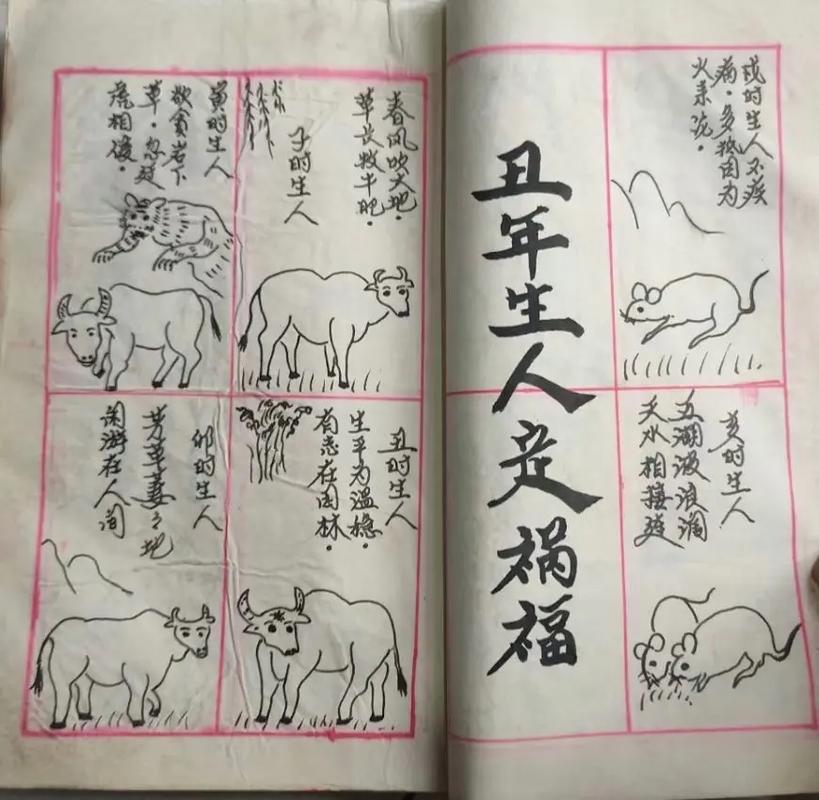 戌时生人不疾
病·多因为
火来
亥时生人
五湖波浪阔
天水相接
丑年生人定祸福
春风吹大地·
草长牧牛肥·
子时生人
丑时生人
生平为温稳·
有志在园林·
寅时生人
欲贪岩下
草·忽
虎相侵·
卯时生人
芳草萋々地
闲游在人间